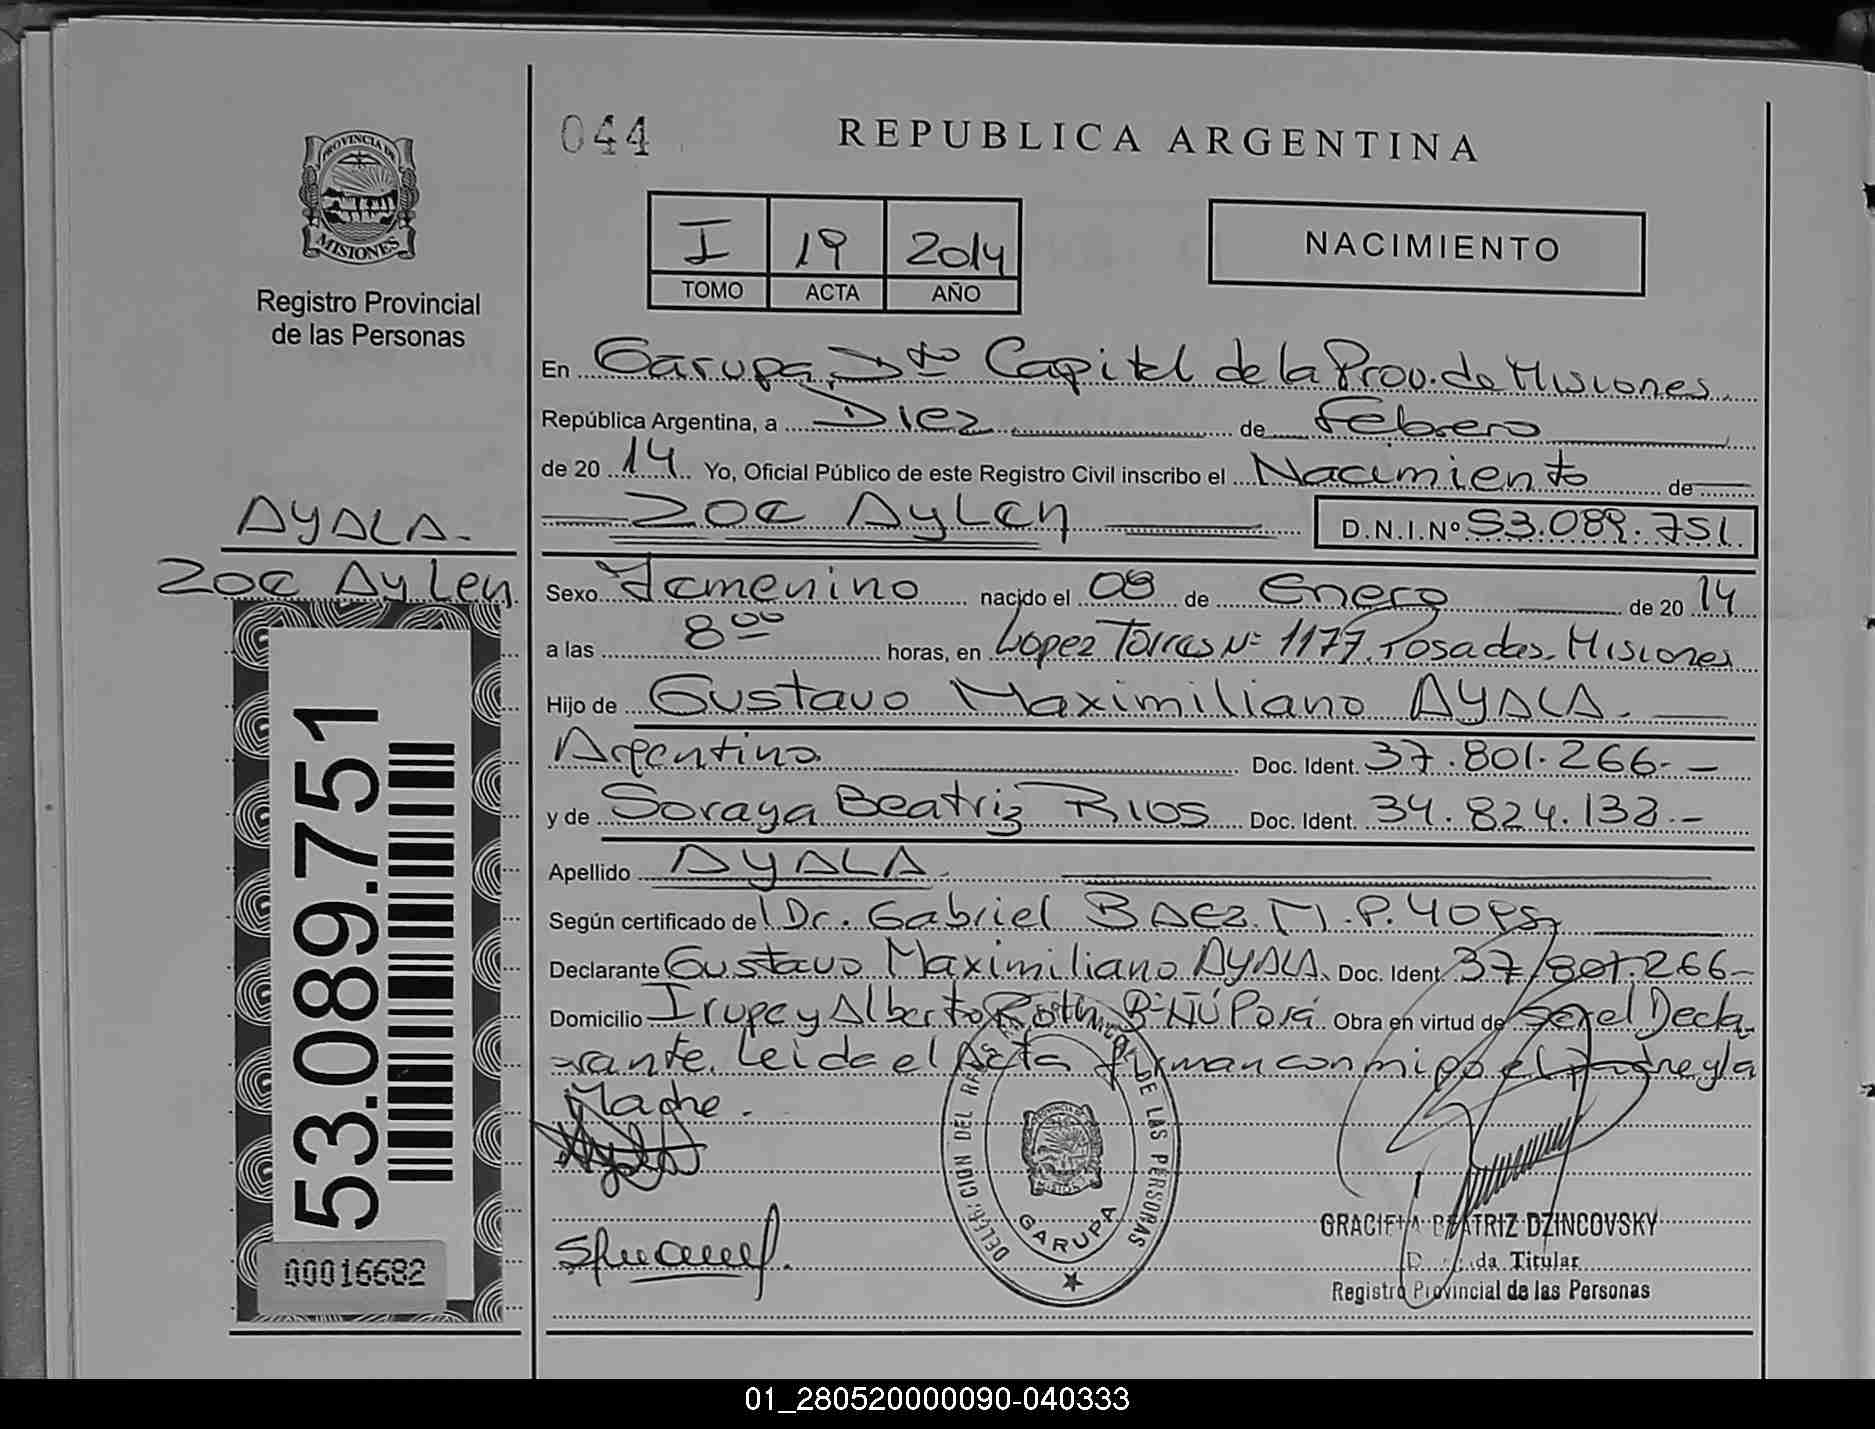 PROVINCIA DE
MISIONES
Registro Provincial
de las Personas
AYALA.
Zoe Aylen
53.089.751
00016682
044
REPUBLICA ARGENTINA
I 19 2014
TOMO ACTA AÑO
NACIMIENTO
En Garupa, Dto Capital de la Prov. de Misiones
República Argentina, a Diez de Febrero
de 20 14 Yo, Oficial Público de este Registro Civil inscribo el Nacimiento de
Zoe Aylen D.N.I.Nº 53.089.751
Sexo Femenino nacido el 08 de Enero de 20 14
a las 8 00 horas, en Lopez Torres Nº 1177, Posadas. Misiones
Hijo de Gustavo Maximiliano AYALA.
Argentino. Doc. Ident. 37.801.266.-
y de Soraya Beatriz RIOS Doc. Ident. 34.824.132.-
Apellido AYALA
Según certificado de Dr. Gabriel BAEZ. M.P.
Declarante Gustavo Maximiliano AYALA. Doc. Ident. 37.801.266-
Domicilio Irupe y Alberto Roth Bº Ñú Porá. Obra en virtud de Ser el Decla
rante. Leida el Acta firman conmigo el Padre y la
Madre.
DELEGACION DEL DE LAS PERSONAS
GARUPA
GRACIELA BEATRIZ DZINCOVSKY
Titular
Registro Provincial de las Personas
01_280520000090-040333